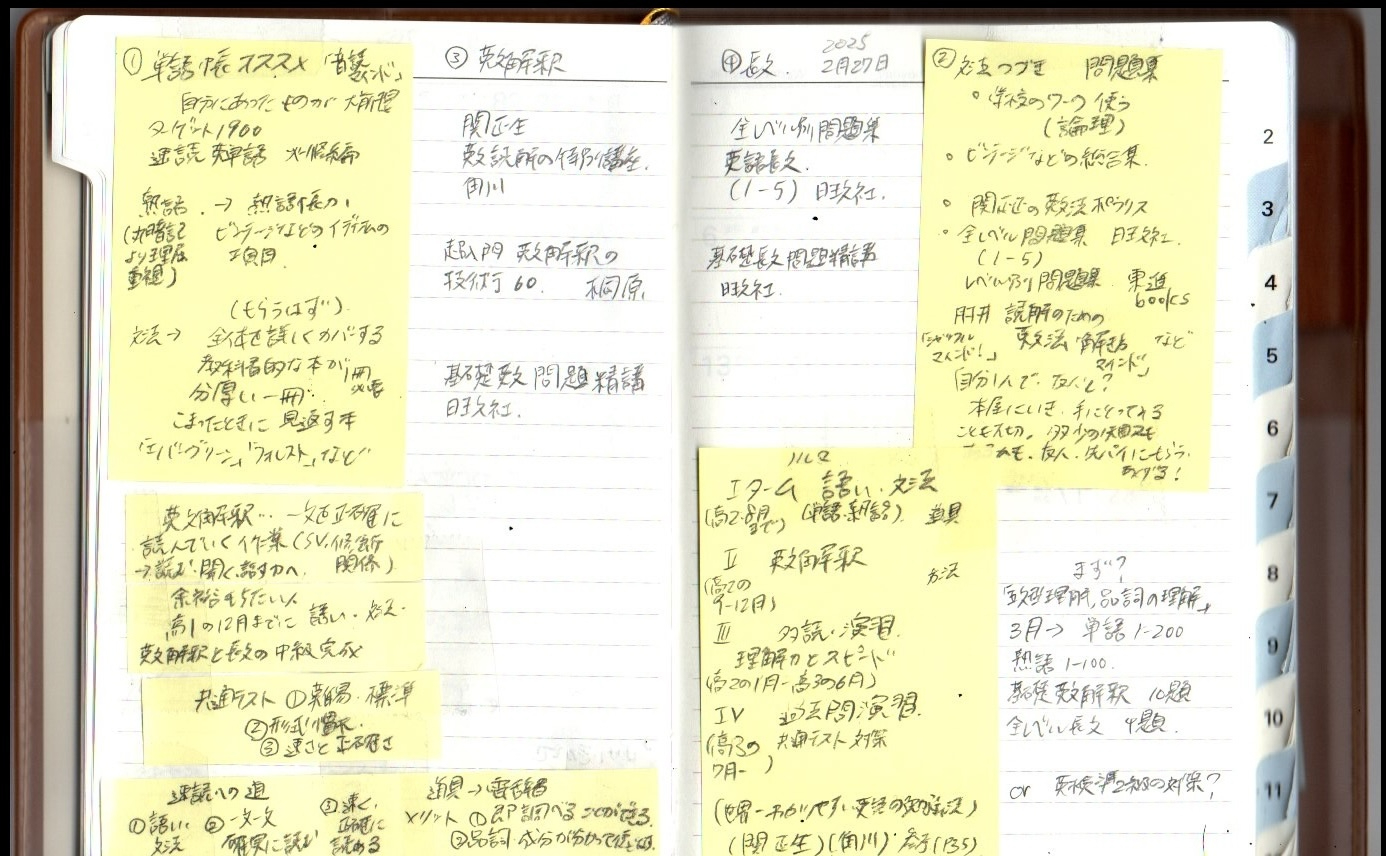 ① 単語帳オススメ 「音読
マインド」
自分にあったものが大前提
ターゲット1900
速読英単語 必修編
熟語 → 熟語帳か、
(丸暗記 ビンテージなどのイディオムの
より理屈 項目
重視)
(もらうはず)
文法→ 全体を詳しくカバーする
教科書的な本が1冊
分厚い一冊 必要
こまったときに見返す本
「エバーグリーン」「フォレスト」など
英文解釈… 一文を正確に
読んでいく作業(SV,修飾
→読む・聞く、話す力へ 関係)
余裕もちたい人
高1の12月までに 語い・文法・
英文解釈と長文の中級完成
共通テスト ①難易・標準
②形式慣れ
③速さと正確さ
速読への道
①語い・ ②一文一文 ③速く、
文法 確実に読む 正確に
読める
道具→電子辞書
メリット ①即調べることができる。
③ 英文解釈
関正生
英文読解の特別講座
角川
超入門 英文解釈の
技術60. 桐原
基礎英文問題精講
旺文社.
④ 長文. 2025
2月27日
全レベル別問題集
英語長文.
(1-5) 旺文社.
基礎長文問題精講
旺文社.
② 文法つづき 問題集
・学校のワーク使う
(論理)
・ビンテージなどの総合集.
・関正生の英文法ポラリス
・全レベル問題集 旺文社.
(1-5)
レベル別問題集 東進
books
肘井 読解のための
英文法 など
自分1人で、友人と?
本屋にいき、手にとってみる
ことも大切。多少の失敗も
友人・先パイにもらう・
あげる!
Iターム 語い・文法
(高2.8月 (単語・熟語) 道具
まで)
II 英文解釈 方法
(高2の
9-12月)
III 多読・演習.
理解力とスピード
(高2の1月-高3の6月)
IV 過去問演習.
(高3の 共通テスト対策
7月- )
(世界一わかりやすい英語の勉強法)
(関正生)(角川) 参考(P.135)
まず?
文型理解,品詞の理解
3月→ 単語1-200
熟語 1-100.
基礎英文解釈 10題
全レベル長文 4題.
or 英検準2級の対策?
2
3
4
5
6
7
8
9
10
11